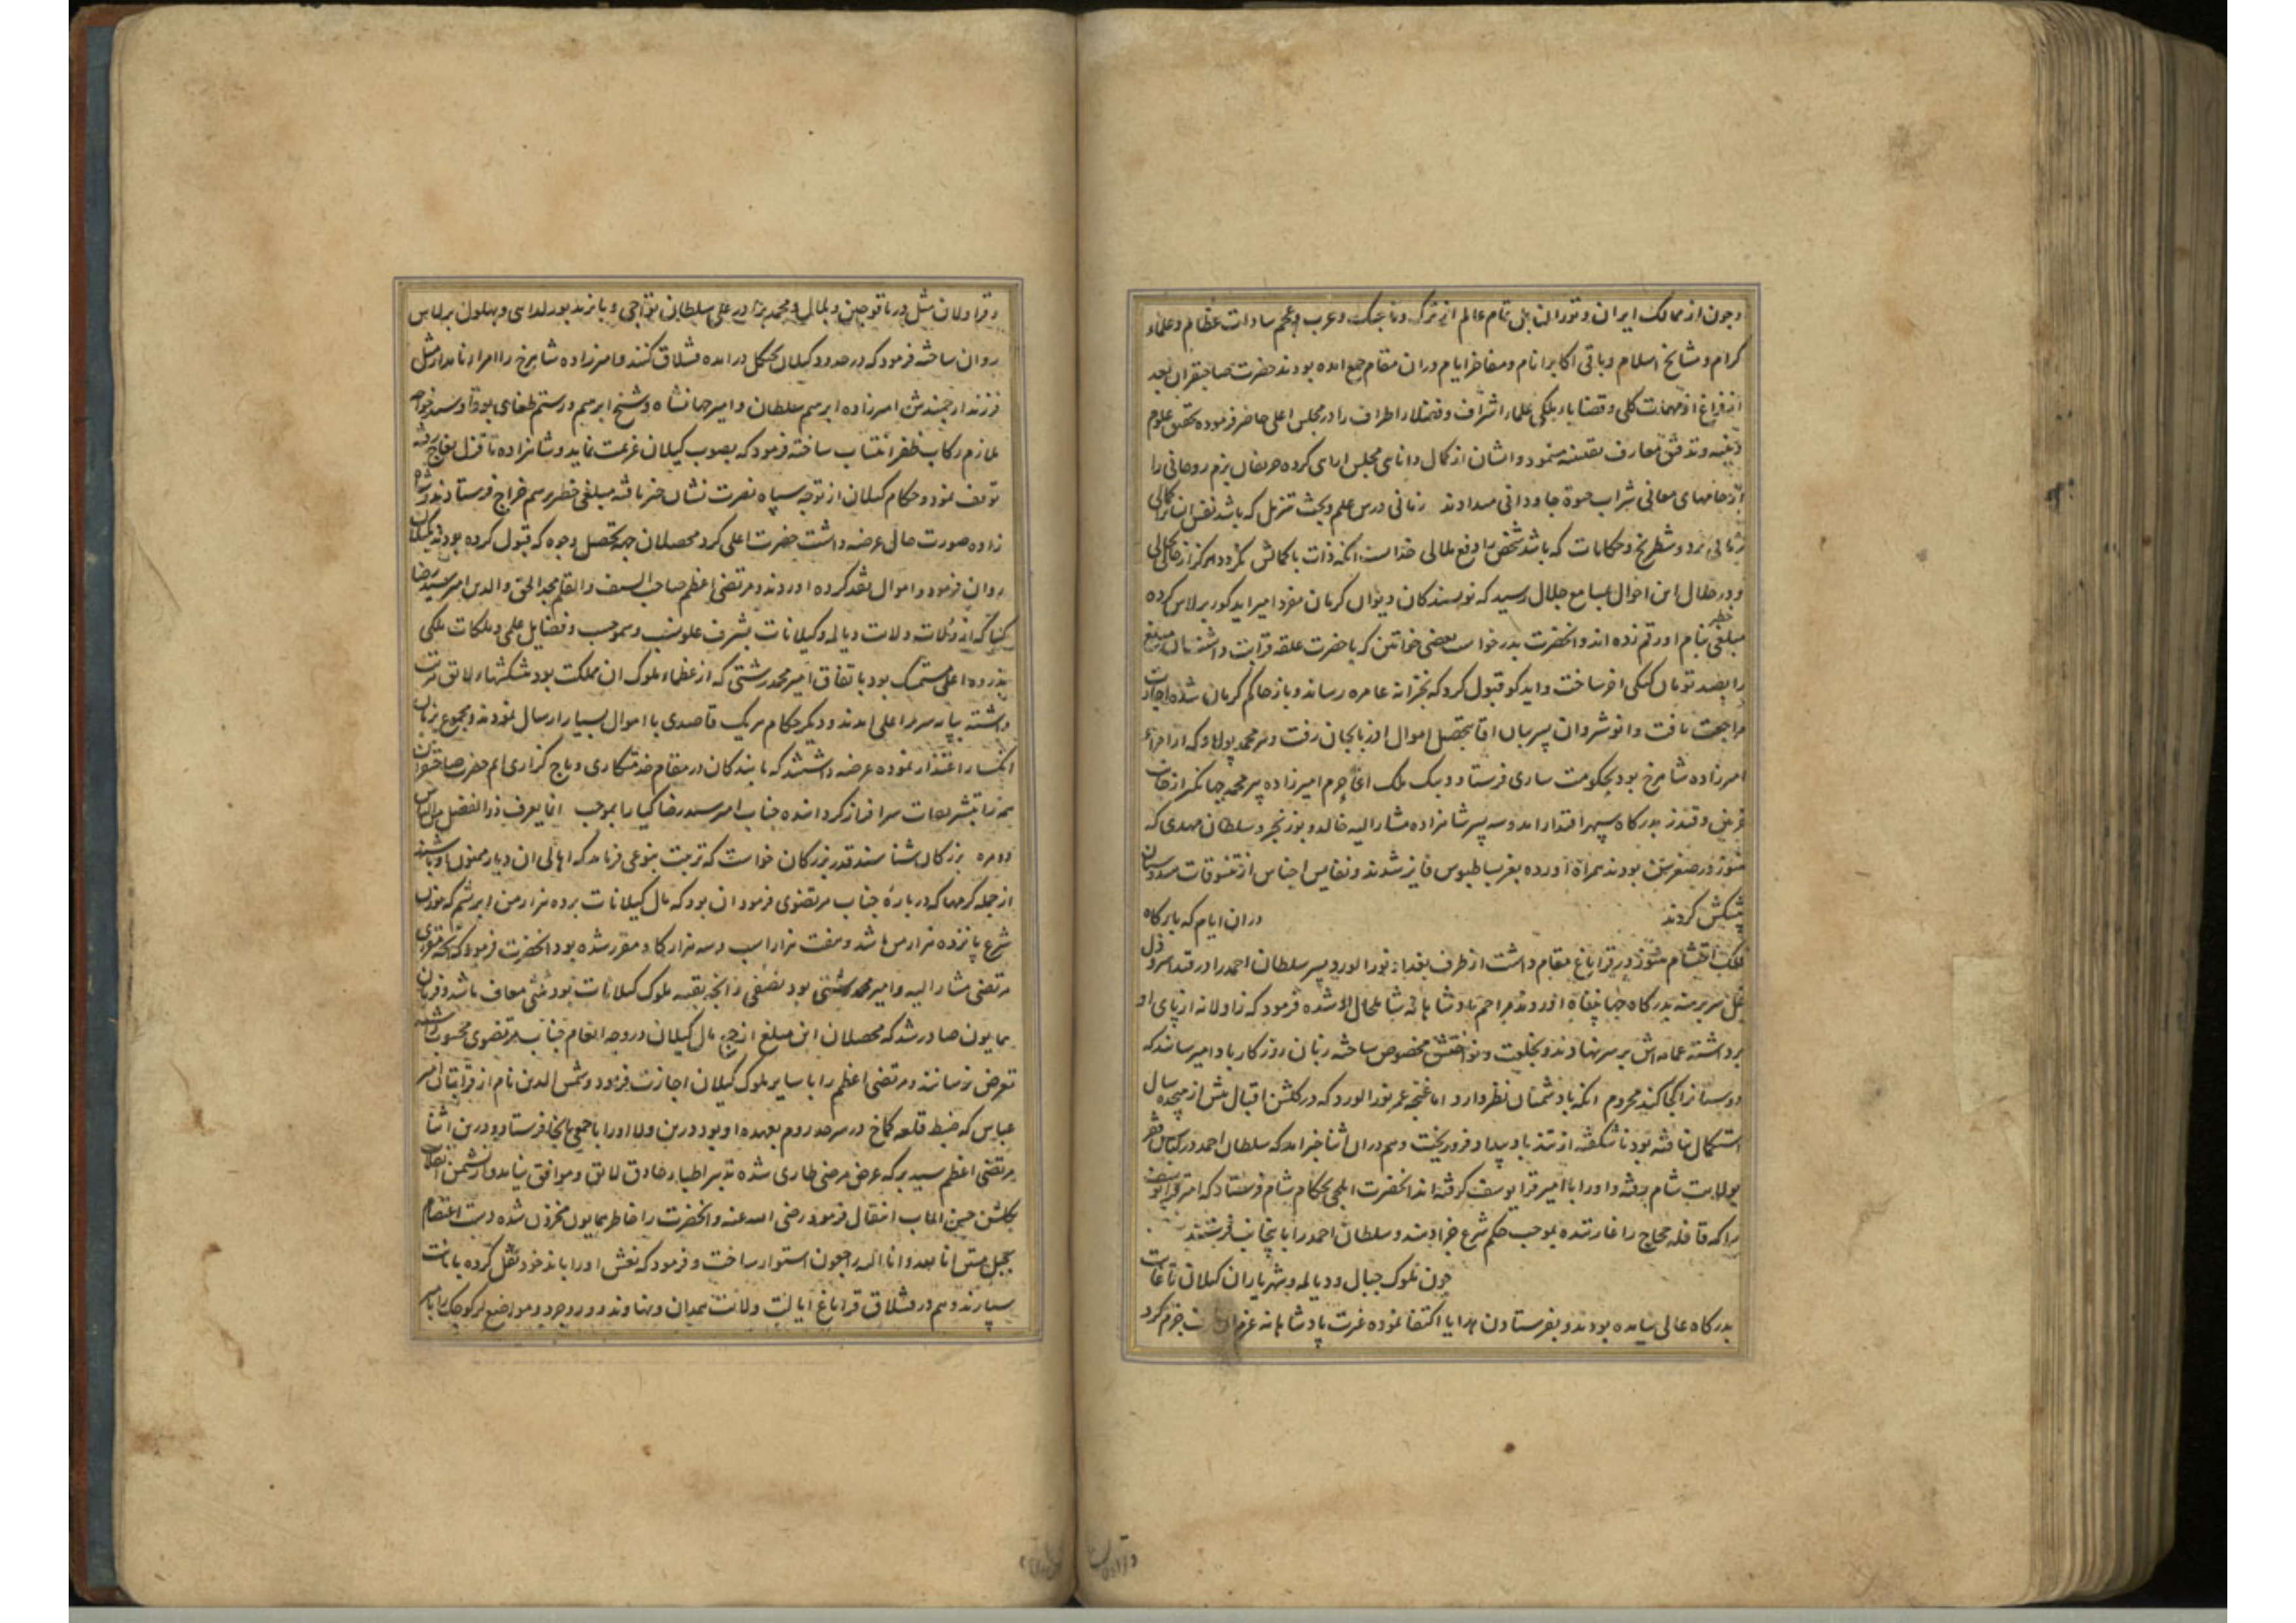 و چون از ممالک ایران و توران بل تمام عالم از ترک و تاجیک و عرب و عجم سادات عظام و علماء
کرام و مشایخ اسلام و باقی اکابر انام و مفاخر ایام دران مقام جمع امده بودند حضرت صاحبقران بعد
از فراغ از مهمات کلی و قضایاء ملکی علماء اشراف و فضلاء اطراف را در مجلس اعلی حاضر فرموده تحقیق علوم
دینیه و تدقیق معارف یقینیه مینمود و ایشان از کمال دانایی مجلس ارایی کرده حریفان بزم روحانی را
از جامهای معانی شراب حیوة جاودانی میدادند زمانی درس علم و بحث تنزیل که باشد نفس انسانرا کمالی
زمانی نرد و شطرنج و حکایات که باشد شخص را دفع ملالی خداست انکه ذات با کمالش نکردد هرکز از حالی بحالی
و در خلال این احوال بمسامع جلال رسید که نویسندکان دیوان کرمان مفرد امیر ایدکو برلاس کرده
مبلغی خطیر بنام او رقم زده اند و انحضرت بدرخواست بعضی خواتین که با حضرت علقه قرابت داشتند ان مبلغ
را بصد تومان کپکی اخر ساخت و ایدکو قبول کرد که بخزانه عامره رساند و باز حاکم کرمان شده اجازت
مراجعت یافت و انوشروان پسر بیان اقا بتحصیل اموال اذربایجان رفت و پیر محمد پولاد که از امراء
امیرزاده شاهرخ بود بحکومت ساری فرستاد و بیک ملک اغا حرم امیرزاده پیر محمد جهانکیر از جانب
غزنین و قندز بدرکاه سپهر اقتدار امد و سه پسر شاهزاده مشار الیه خالد و بوزنجر و سلطان مهدی که
هنوز در صغر سن بودند همراه اورده بعز بساط بوس فایز شدند و نفایس اجناس از تنسوقات هندوستان
پیشکش کردند دران ایام که بارکاه
فلک احتشام هنوز در قراباغ مقام داشت از طرف بغداد نورالورد پسر سلطان احمد را در قید اسر و ذل
غل سر برهنه بدرکاه جهانپناه اوردند مراحم پادشاهانه شامل حال او شده فرمود که زاولانه از پای او
برداشته عمامه اش بر سر نهادند و بخلعت و نوازش مخصوص ساخته زبان روزکار باد امیر ساند که
دوستانرا کجا کند محروم انکه با دشمنان نظر دارد اما غنچه عمر نورالورد که در کلشن اقبال بیش از هیجده سال
استکمال نیافته بود ناشکفته از تندباد بیداد فرو ریخت و هم دران اثنا خبر امد که سلطان احمد در کسای فقر
بولایت شام رفته و او را با امیر قرا یوسف کرفته اند انحضرت ایلچی بحکام شام فرستاد که امیر قرا یوسف
را که قافله حجاج را غارتیده بموجب حکم شرع جزا دهند و سلطان احمد را باینجانب فرستند
چون ملوک جبال و دیالمه و شهریاران کیلان تا غایت
بدرکاه عالی نیامده بودند و بفرستادن هدایا اکتفا نموده غیرت پادشاهانه عزم جزم کرد
و قراولان مثل دریا قوجین و بلال و محمد برادر علی سلطان تواجی و بایزید بورلدای و بهلول برلاس
روان ساخته فرمود که در حدود کیلان بجنکل درامده قشلاق کنند و امیرزاده شاهرخ را با امراء نامدار مثل
فرزند ارجمندش امیرزاده ابرهیم سلطان و امیر جهانشاه و شیخ ابرهیم و رستم طغای بوقا و سید خواجه
ملازم رکاب ظفر انتساب ساخته فرمود که بصوب کیلان عزیمت نماید و شاهزاده تا قزل یغاج رفته
توقف نمود و حکام کیلان از توجه سپاه نصرت نشان خبر یافته مبلغی خطیر برسم خراج فرستادند و شاه
زاده صورت حال عرضه داشت حضرت اعلی کرد محصلان جهت تحصیل وجوه که قبول کرده بودند بکیلان
روان فرمود و اموال نقد کرده اوردند و مرتضی اعظم صاحب السیف و القلم مجد الحق و الدین امیر سید رضا
کیا که از ولات ولایت دیالمه و کیلانات بشرف علو نسب و سمو حسب و فضایل علمی و ملکات ملکی
بذروه اعلی متمسک بود باتفاق امیر محمد رشتی که از عظماء ملوک ان مملکت بود پیشکشها لایق مرتب
داشته بپایه سریر اعلی امدند و دیکر حکام هر یک قاصدی با اموال بسیار ارسال نمودند و مجموع بزبان
انکسار اعتذار نموده عرضه داشتند که ما بندکان در مقام خدمتکاری و باج کزاری ایم حضرت صاحبقران
همه را بتشریفات سرافراز کردانیده جناب امیر سید رضا کیا را بموجب انما یعرف ذا الفضل من الناس
ذووه بزرکان شناسند قدر بزرکان خواست که تربیت بنوعی فرماید که اهالی ان دیار ممنون او باشند
از جمله کرمها که در باره جناب مرتضوی فرمود ان بود که مال کیلانات بر ده هزار من ابریشم که بوزن
شرع پانزده هزار من باشد و هفت هزار اسب و سه هزار کاو مقرر شده بود انحضرت فرمود که انچه مقرری
مرتضی مشار الیه و امیر محمد رشتی بود نصفی و انچه بقیه ملوک کیلانات بود ثلثی معاف باشد و فرمان
همایون صادر شد که محصلان این مبلغ از جمع مال کیلان در وجه انعام جناب مرتضوی محسوب داشته
تعرض نرسانند و مرتضی اعظم را با سایر ملوک کیلان اجازت فرمود و شمس الدین نام از قرابتان امیر
عباس که ضبط قلعه کماخ در سرحد روم بعهده او بود درین ولا او را با جمعی بانجا فرستاد و درین اثنا
مرتضی اعظم سید برکه عرض مرضی طاری شده تدبیر اطباء حاذق لایق و موافق نیامد و از نشیمن
بکلشن حسن الماب انتقال فرمود رضی الله عنه و انحضرت را خاطر همایون محزون شده دست اعتصام
بحبل متین انا لله و انا الیه راجعون استوار ساخت و فرمود که نعش او را باندخود نقل کرده بامانت
سپارند و هم در قشلاق قراباغ ایالت ولایت همدان و نهاوند و وروجرد و مواضع لر کوچک را بامیر